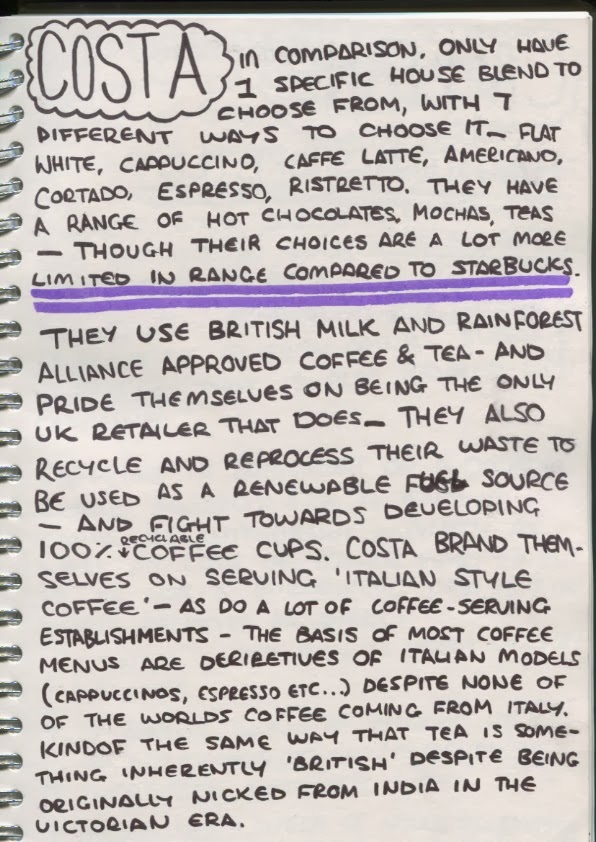 COSTA IN COMPARISON, ONLY HAVE
1 SPECIFIC HOUSE BLEND TO
CHOOSE FROM, WITH 7
DIFFERENT WAYS TO CHOOSE IT— FLAT
WHITE, CAPPUCCINO, CAFFE LATTE, AMERICANO,
CORTADO, ESPRESSO, RISTRETTO. THEY HAVE
A RANGE OF HOT CHOCOLATES, MOCHAS, TEAS
— THOUGH THEIR CHOICES ARE A LOT MORE
LIMITED IN RANGE COMPARED TO STARBUCKS.
THEY USE BRITISH MILK AND RAINFOREST
ALLIANCE APPROVED COFFEE & TEA - AND
PRIDE THEMSELVES ON BEING THE ONLY
UK RETAILER THAT DOES— THEY ALSO
RECYCLE AND REPROCESS THEIR WASTE TO
BE USED AS A RENEWABLE FUEL SOURCE
— AND FIGHT TOWARDS DEVELOPING
RECYCLABLE
100% ↓COFFEE CUPS. COSTA BRAND THEM-
SELVES ON SERVING 'ITALIAN STYLE
COFFEE' — AS DO A LOT OF COFFEE-SERVING
ESTABLISHMENTS - THE BASIS OF MOST COFFEE
MENUS ARE DERIRETIVES OF ITALIAN MODELS
(CAPPUCCINOS, ESPRESSO ETC...) DESPITE NONE OF
OF THE WORLDS COFFEE COMING FROM ITALY.
KINDOF THE SAME WAY THAT TEA IS SOME-
THING INHERENTLY 'BRITISH' DESPITE BEING
ORIGINALLY NICKED FROM INDIA IN THE
VICTORIAN ERA.